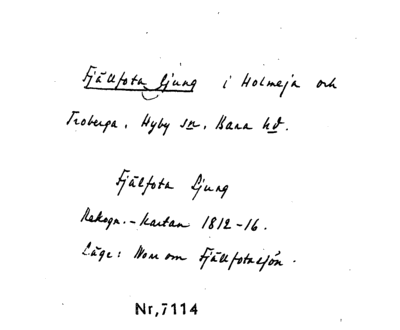 Fjällfota Ljung i Holmeja och
Troberga, Hyby sn, Bara hd.
Fjälfota Ljung
Rekogn.-kartan 1812-16.
Läge: Norr om Fjällfotasjön.
Nr, 7114